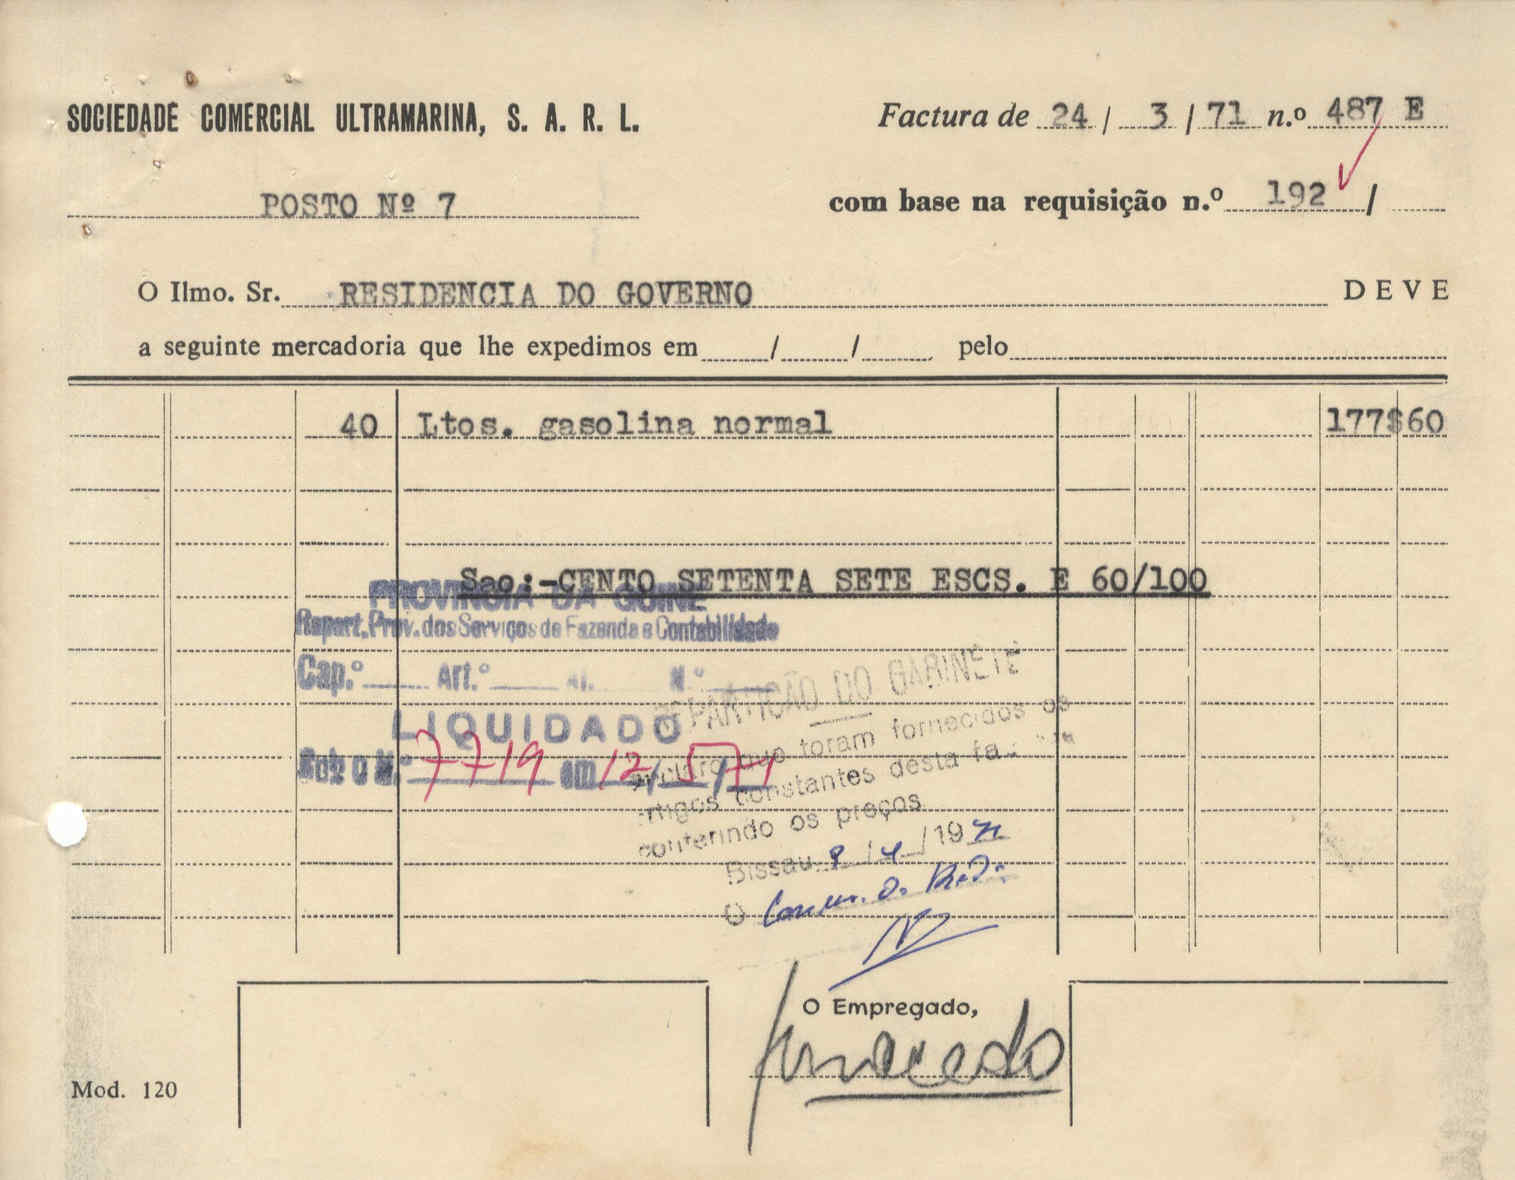 SOCIEDADE COMERCIAL ULTRAMARINA, S. A. R. L.
Factura de 24 / 3 / 71 n.º 487 E
POSTO Nº 7
com base na requisição n.º 192 /
O Ilmo. Sr. RESIDENCIA DO GOVERNO DEVE
a seguinte mercadoria que lhe expedimos em / / pelo
40 Ltos. gasolina normal 177$60
Sao:-CENTO SETENTA SETE ESCS. E 60/100
PROVINCIA DA GUINÉ
Repart. Prov. dos Serviços de Fazenda e Contabilidade
Cap.º Art.º N.º
LIQUIDADO
Sob o N.º 7719 em 12/5/71
REPARTIÇÃO DO GABINETE
que foram fornecidos os
artigos constantes desta
conferindo os preços
Bissau 8 / 4 / 1971
O
O Empregado,
Mod. 120